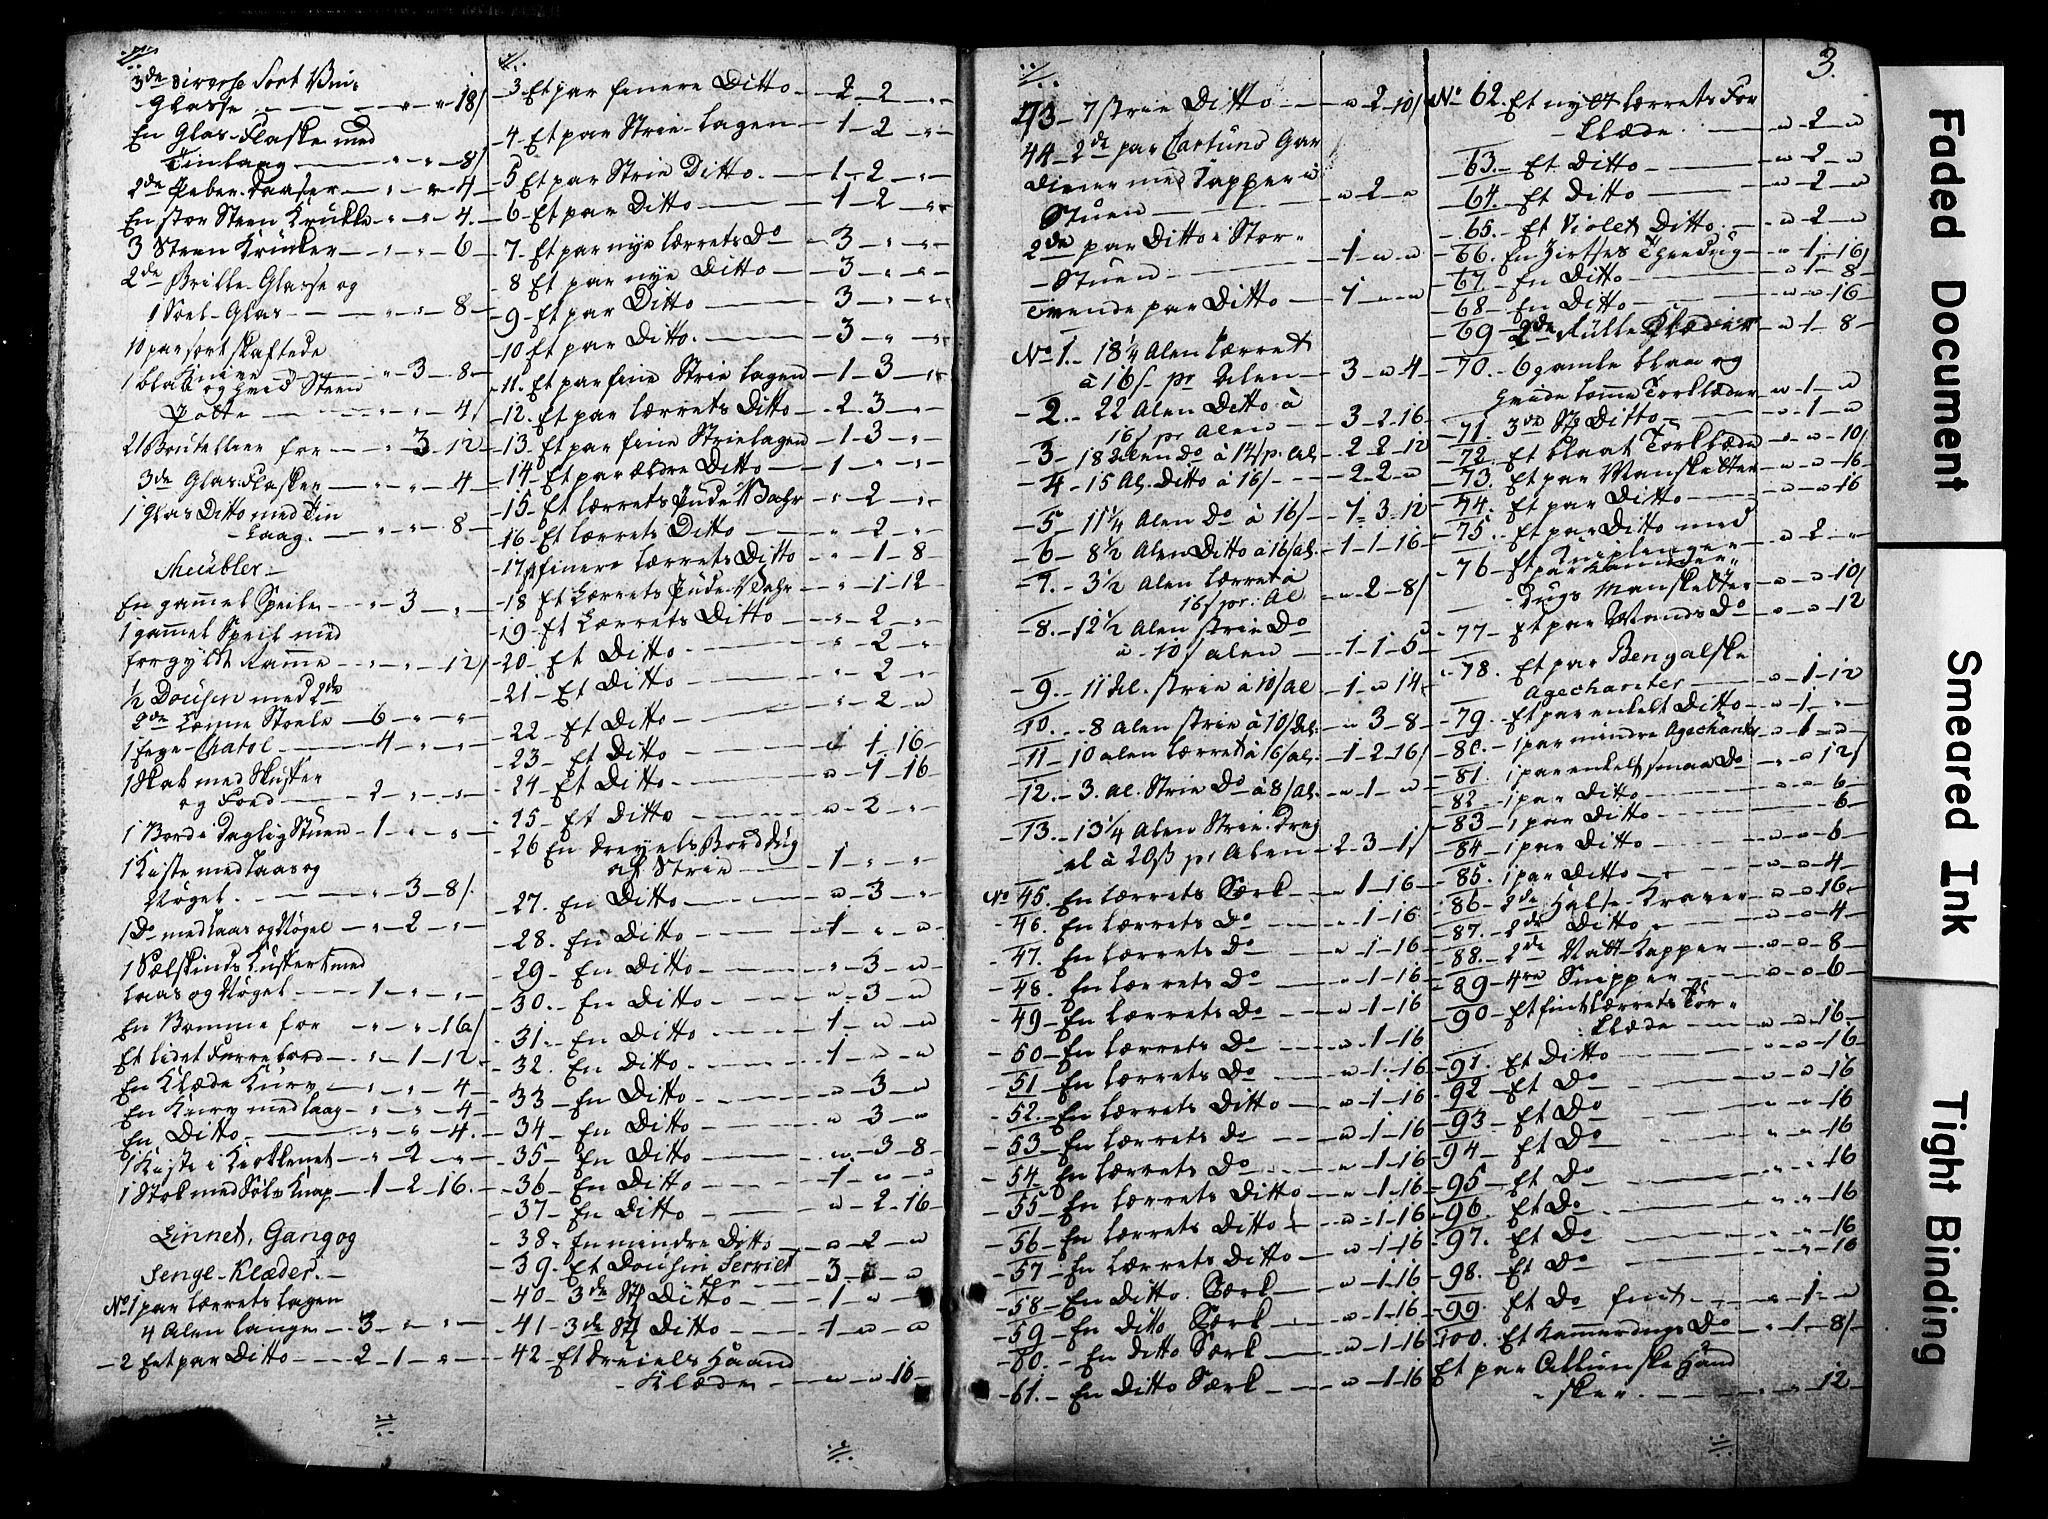 3de diverse Sort Viin
Glasse - " - " - 18/
En Glas-Flaske med
Tinlaag - " - " - 8/
2de Peber Daaser - " - " - 4
En stor Steen Krukke - " - " - 4
3 Steen Krukker - " - " - 6
2de Brille-Glasse og
1 Soel-Glas - " - " - 8
10 par sort skaftede
Knive - " - 3 - 8
1 blaae og hvid Steen
Potte - " - " - 4/
21 Boutellier for - " - 3 - 12
3de Glas Flasker - " - " - 4
1 Glas Ditto med Tin
Laag. - " - " - 8
Meubler
En gammel Speile - " - 3 - "
1 gammel Speil med
forgyldt Ramme - " - " - 12/
½ Dousin med 2de
2de Lænne Stoele - 6 - " - "
1 Eege-Chatol - 4 - " - "
1 Skab med Skuffer
og Foed - 2 - " - "
1 Bord i Daglig Stuen - 1 - " - "
1 Kiste med Laas og
Nøgel - " - 3 - 8/
1 Do med Laas og Nøgel - " - 2 - "
1 Sælskinds Kuffert med
Laas og Nøgel - 1 - " - "
En Bomme for - " - " - 16/
Et lidet Fyrrebord - " - 1 - 12
En Klæde Kurv - " - " - 4
En Kurv med Laag - " - " - 4
En Ditto - " - " - 4
1 Kiste i Kierkenet - " - 2 - "
1 Stok med Sølv Knap - 1 - 2 - 16
Linnet, Gang og
Senge-Klæder.
No 1 par Lærrets Lagen
4 Alen lange - 3 - " - "
2 Et par Ditto - 2 - 1 - "
3 Et par finere Ditto - 2 - 2 - "
4 Et par Strie-Lagen - 1 - 2 - "
5 Et par Strie Ditto - 1 - 2 - "
6 Et par Ditto - 1 - 2 - "
7 Et par nye Lærrets Do - 3 - " - "
8 Et par nye Ditto - 3 - " - "
9 Et par Ditto - 3 - " - "
10 Et par Ditto - 3 - " - "
11. Et par fine Strie Lagen - 1 - 3 - "
12. Et par Lærrets Ditto - 2 - 3 - "
13 Et par fine Strielagen - 1 - 3 - "
14 Et par ældre Ditto - 1 - " - "
15 Et Lærrets Pude Vahr - " - 2 - "
16 Et Lærrets Ditto - " - 2 - "
17 1 finere Lærrets Ditto - " - 1 - 8
18 Et Lærrets Pude-Vahr - " - 1 - 12
19 Et Lærrets Ditto - " - 2 - "
20 Et Ditto - " - 2 - "
21 Et Ditto - " - 2 - "
22 Et Ditto - " - 2 - "
23 Et Ditto - " - 1 - 16
24 Et Ditto - " - 1 - 16
25 Et Ditto - " - 2 - "
26 En Dreyels Bord Dug
af Strie - 1 - " - "
27. En Ditto - " - 3 - "
28. En Ditto - 1 - " - "
29 En Ditto - " - 3 - "
30. En Ditto - " - 3 - "
31. En Ditto - 1 - " - "
32. En Ditto - 1 - " - "
33 En Ditto - " - 3 - "
34 En Ditto - " - 3 - "
35 En Ditto - " - 3 - 8
36 En Ditto - 1 - " - "
37 En Ditto - " - 2 - 16
38 En mindre Ditto - " - 2 - "
39. Et Dousin Serviet
ter - 3 - " - "
40 3de St Ditto - 1 - " - "
41 3de St Ditto - 1 - " - "
42 Et Dreiels Haand
Klæde - " - " - 16
3.
43 7 Strie Ditto - " - 2 - 10/
44 2de par Cartuns Gar
diner med Kapper i
Stuen - " - 2 - "
2de par Ditto i Stor
Stuen - 1 - " - "
Tvende par Ditto - 1 - " - "
No 1. 18¼ Alen Lærret
à 16/ pr Alen - 3 - " - 4
2. 22 Alen Ditto à
16/ pr Alen - 3 - 2 - 16
3 18 Alen Do à 14/ p. Al. - 2 - 2 - 12
4 15 Al. Ditto à 16/ - 2 - 2 - "
5 11¼ Alen Do à 16/ - 1 - 3 - 12
6 8½ Alen Ditto à 16/ al. - 1 - 1 - 16
7. 3½ Alen Lærret à
16/ pr: Al - " - 2 - 8/
8. 12½ Alen Strie Do
à 10/ Alen - 1 - 1 - 5
9. 11 Al. Strie à 10/ Al - 1 - " - 14
10. 8 Alen Strie à 10/ Al. - " - 3 - 8
11 10 Alen Lærret à 16/ al. - 1 - 2 - 16/
12. 3. Al. Strie Do à 8/ Al. - " - 1 - "
13. 13¼ Alen Strie. Drej
el à 20ß pr Alen - 2 - 3 - 1/
No 45. En Lærrets Særk - " - 1 - 16
46. En Lærrets Do - " - 1 - 16
47. En Lærrets Do - " - 1 - 16
48. En Lærrets Do - " - 1 - 16
49 En Lærrets Do - " - 1 - 16
50 En Lærrets Do - " - 1 - 16
51 En Lærrets Do - " - 1 - 16
52. En Lærrets Ditto - " - 1 - 16
53 En Lærrets Do - " - 1 - 16
54 En Lærrets Do - " - 1 - 16
55 En Lærrets Ditto - " - 1 - 16
56 En Lærrets Ditto - " - 1 - 16
57 En Lærrets Ditto - " - 1 - 16
58 En Ditto. Særk - " - 1 - 16
59 En Ditto Særk - " - 1 - 16
60. En Ditto Særk - " - 1 - 16
61. En Ditto Særk - " - 1 - 16
No 62. Et nyt Lærrets For
klæde - " - 2 - "
63. Et Ditto - " - 2 - "
64. Et Ditto - " - 2 - "
65. Et Violet Ditto - " - 2 - "
66. En Zirtses Theedug - " - 1 - 16/
67. En Ditto - " - 1 - 8
68 En Ditto - " - " - 16
69 2de Rulle Klæder - " - 1 - 8
70. 6 gamle blaa og
hvide Lomme Tørklæder - " - 1 - "
71. 3de St Ditto - " - 1 - "
72. Et blaat Tørklæde - " - " - 10/
73. Et par Mansketter - " - " - 16
74. Et par Ditto - " - " - 16
75. Et par Ditto med
Kniplinger - " - 2 - "
76 Et par Kammer
Dugs Mansketter - " - " - 10/
77 Et par Mands Do - " - " - 12
78. Et par Bengalske
Agechanter - " - 1 - 12
79. Et par enkelt Ditto - " - 1 - "
80. 1 par mindre Agechanter - " - 1 - "
81. 1 par enkelt smaa Do - " - " - 12/
82 1 par Ditto - 6
83 1 par Ditto - 6
84 1 par Ditto - " - " - 6
85. 1 par Ditto - " - " - 4
86 2de Halse-Kraver - " - " - 16
87. 2de Ditto - " - " - 4
88. 2de Natt Kapper - " - " - 8
89 4re Snipper - " - " - 6
90 Et fint Lærrets Tør
klæde - " - " - 16
91. Et Ditto - " - " - 16
92 Et Do - " - " - 16
93 Et Do - " - " - 16
94 Et Do - " - " - 16
95 Et Do - " - " - 16
96. Et Do - " - " - 16
97. Et Do - " - " - 16
98. Et Do - " - " - 16
99. Et Do fint - " - 1 - "
100. Et Kammerdugs Do - " - 1 - 8/
Et par Hand
sker - " - " - 12
Faded Document
Smeared Ink
Tight Binding